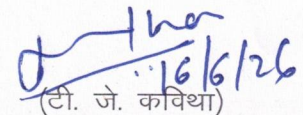 16/6/26
(टी. जे. कविथा)